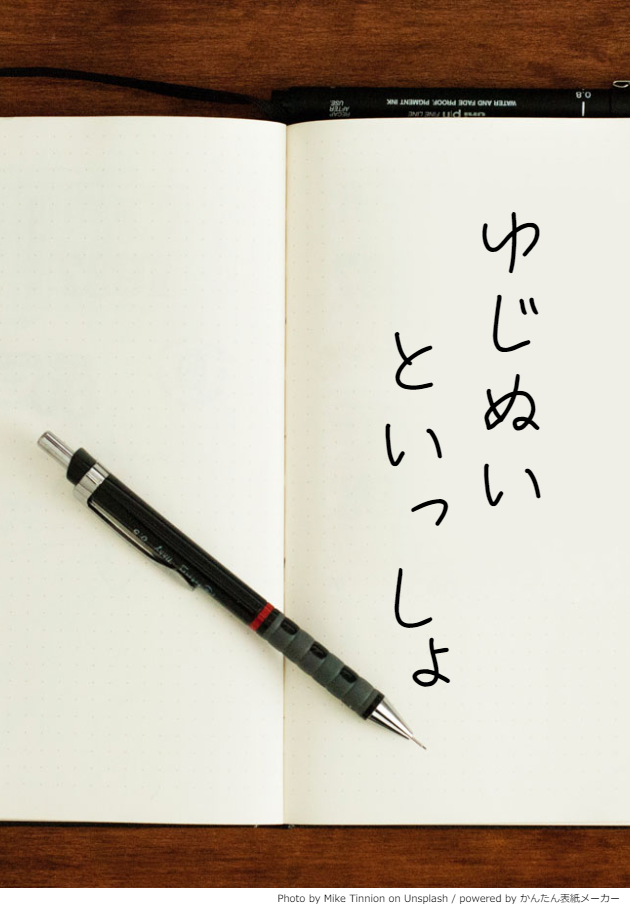 ゆじぬい
といっしょ
WATER AND FADE PROOF, PIGMENT INK
uni PiN FINE LINE
RECAP AFTER USE
0.8
Photo by Mike Tinnion on Unsplash / powered by かんたん表紙メーカー